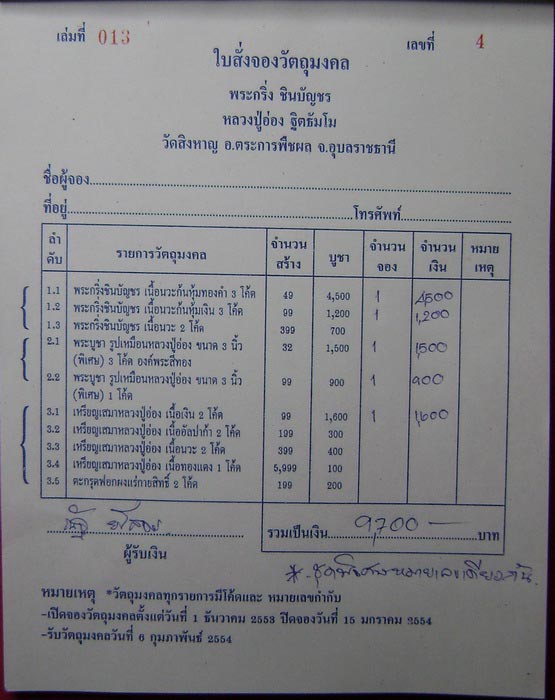 เล่มที่ 013 เลขที่ 4
ใบสั่งจองวัตถุมงคล
พระกริ่ง ชินบัญชร
หลวงปู่อ่อง ฐิตธัมโม
วัดสิงหาญ อ.ตระการพืชผล จ.อุบลราชธานี
ชื่อผู้จอง
ที่อยู่ โทรศัพท์
ลำดับ รายการวัตถุมงคล จำนวนสร้าง บูชา จำนวนจอง จำนวนเงิน หมายเหตุ
1.1 พระกริ่งชินบัญชร เนื้อนวะก้นหุ้มทองคำ 3 โค้ด 49 4,500 1 4,500
1.2 พระกริ่งชินบัญชร เนื้อนวะก้นหุ้มเงิน 3 โค้ด 99 1,200 1 1,200
1.3 พระกริ่งชินบัญชร เนื้อนวะ 2 โค้ด 399 700
2.1 พระบูชา รูปเหมือนหลวงปู่อ่อง ขนาด 3 นิ้ว 32 1,500 1 1,500
(พิเศษ) 3 โค้ด องค์พระสีทอง
2.2 พระบูชา รูปเหมือนหลวงปู่อ่อง ขนาด 3 นิ้ว 99 900 1 900
(พิเศษ) 1 โค้ด
3.1 เหรียญเสมาหลวงปู่อ่อง เนื้อเงิน 2 โค้ด 99 1,600 1 1,600
3.2 เหรียญเสมาหลวงปู่อ่อง เนื้ออัลปาก้า 2 โค้ด 199 300
3.3 เหรียญเสมาหลวงปู่อ่อง เนื้อนวะ 2 โค้ด 399 400
3.4 เหรียญเสมาหลวงปู่อ่อง เนื้อทองแดง 1 โค้ด 5,999 100
3.5 ตะกรุดฟอกผงแร่กายสิทธิ์ 2 โค้ด 199 200
รวมเป็นเงิน 9,700 – บาท
ผู้รับเงิน
* ชุดพิเศษหมายเลขเดียวกัน
หมายเหตุ *วัตถุมงคลทุกรายการมีโค้ดและ หมายเลขกำกับ
-เปิดจองวัตถุมงคลตั้งแต่วันที่ 1 ธันวาคม 2553 ปิดจองวันที่ 15 มกราคม 2554
-รับวัตถุมงคลวันที่ 6 กุมภาพันธ์ 2554